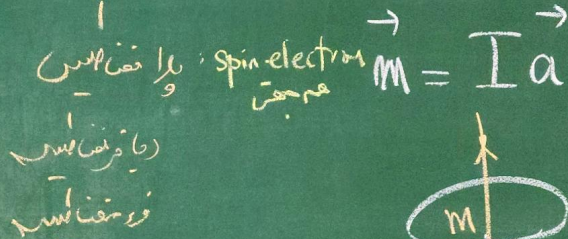 پارا مغناطیس : spin-electron
هم جهتی
m = I a
دیا مغناطیس
فرو مغناطیس
m